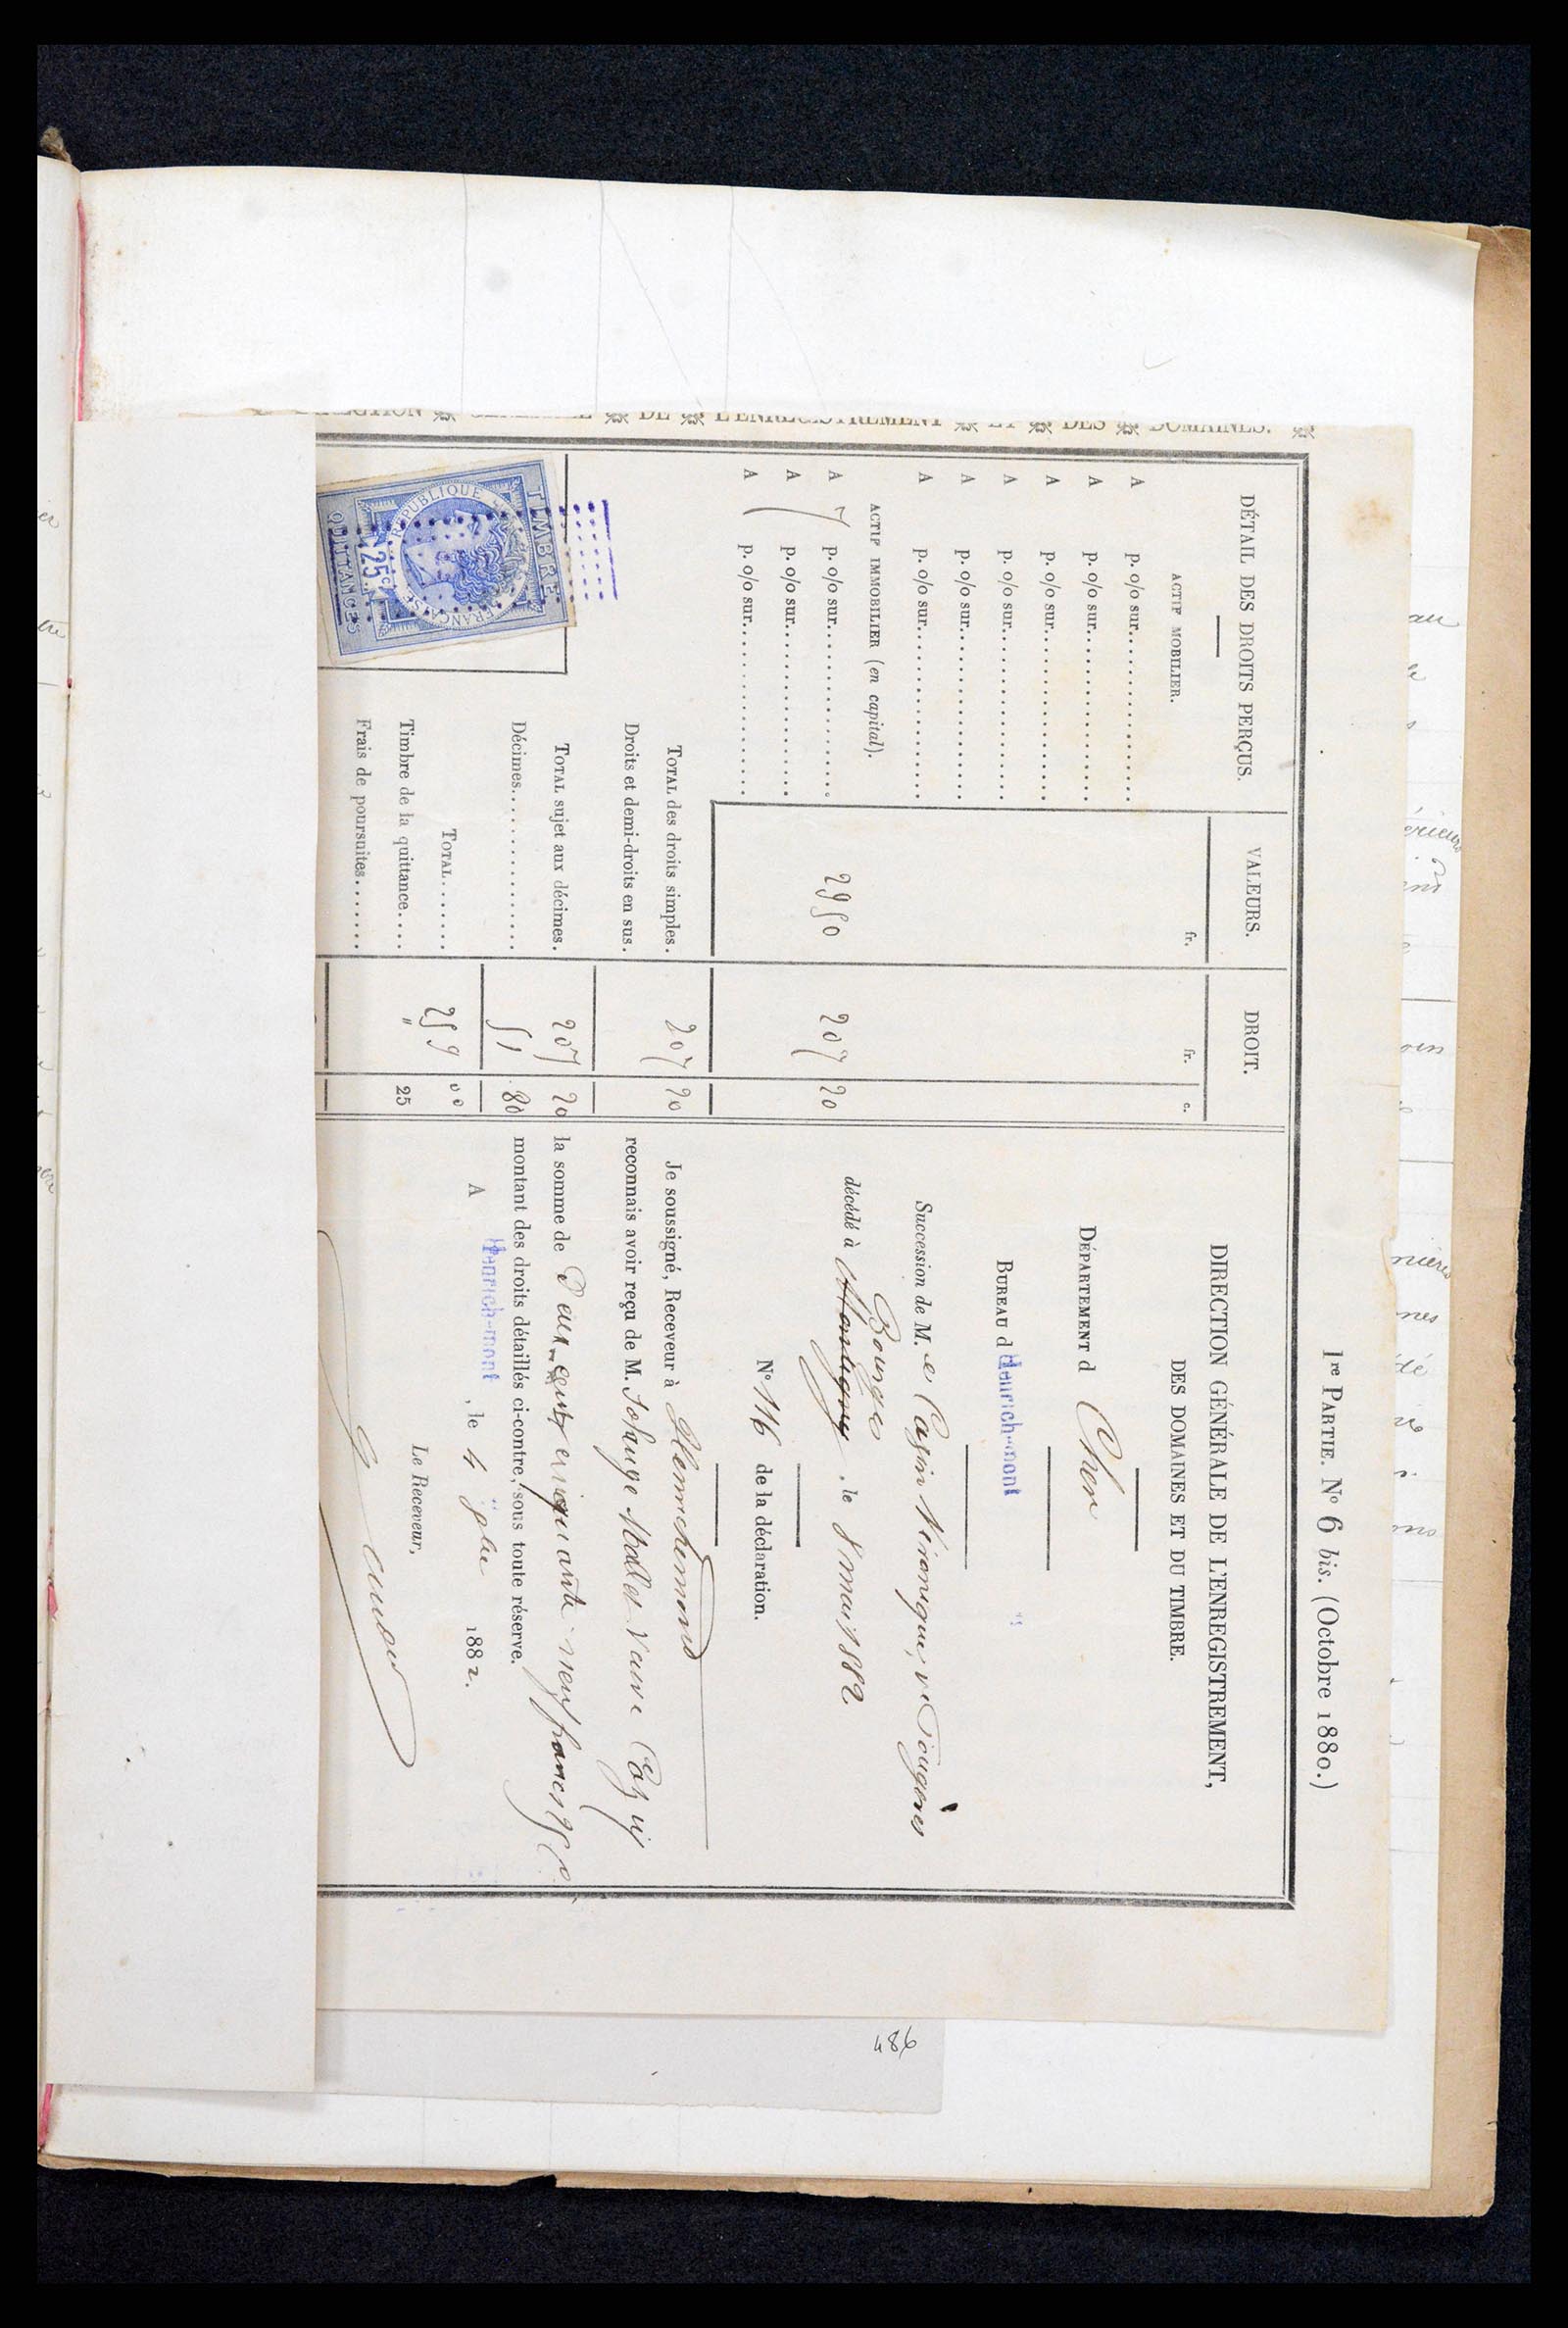 Ire PARTIE. N° 6 bis. (Octobre 1880.)
DE L'ENREGISTREMENT ET DES DOMAINES.
DÉTAIL DES DROITS PERÇUS.
VALEURS.
DROIT.
fr.
fr.
c.
ACTIF MOBILIER.
A p. o/o sur
A p. o/o sur
A p. o/o sur
A p. o/o sur
A p. o/o sur
A p. o/o sur
ACTIF IMMOBILIER (en capital).
A 7 p. o/o sur 2950 207 20
A p. o/o sur
A p. o/o sur
TOTAL des droits simples. 207 20
Droits et demi-droits en sus.
TOTAL sujet aux décimes. 207 20
Décimes 51 80
TOTAL 259 00
Timbre de la quittance " 25
Frais de poursuites
TIMBRE
REPUBLIQUE FRANCAISE
25 c
QUITTANCES
DIRECTION GÉNÉRALE DE L'ENREGISTREMENT,
DES DOMAINES ET DU TIMBRE.
DÉPARTEMENT d Cher
BUREAU d Henrichemont
Succession de M. e Casin Véronique, ve
Bourges
décédé à Montigny, le 8 mai 1882
N° 116 de la déclaration.
Je soussigné, Receveur à Henrichemond
reconnais avoir reçu de M. Solange veuve
la somme de Deux cents cinquante neuf francs 25 c.
montant des droits détaillés ci-contre, sous toute réserve.
A Henrichemont, le 4 1882.
Le Receveur,
486